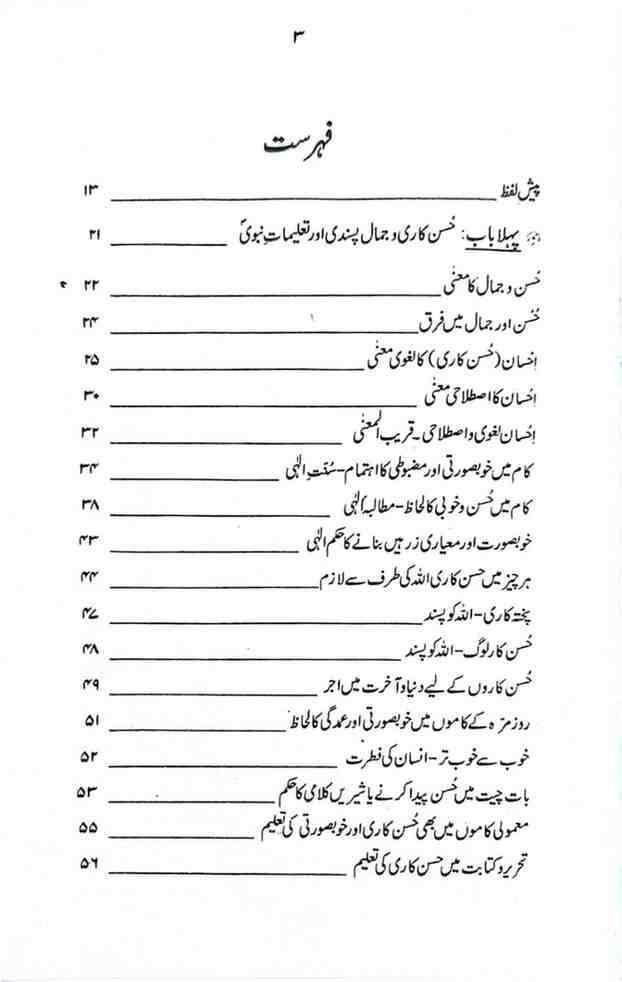 ۳
فہرست
پیش لفظ ۱۳
پہلا باب: حُسن کاری و جمال پسندی اور تعلیماتِ نبویؐ ۲۱
حُسن و جمال کا معنٰی ۲۲
حُسن اور جمال میں فرق ۲۴
اِحْسان (حُسن کاری) کا لغوی معنٰی ۲۵
اِحْسان کا اصطلاحی معنٰی ۳۰
اِحْسان لغوی و اصطلاحی - قریب المعنٰی ۳۲
کام میں خوبصورتی اور مضبوطی کا اہتمام - سُنّتِ الٰہی ۳۴
کام میں حُسن و خوبی کا لحاظ - مطالبۂ الٰہی ۳۸
خوبصورت اور معیاری زرہیں بنانے کا حکم الٰہی ۴۳
ہر چیز میں حسن کاری اللہ کی طرف سے لازم ۴۴
پختہ کاری - اللہ کو پسند ۴۷
حُسن کار لوگ - اللہ کو پسند ۴۸
حُسن کاروں کے لیے دنیا و آخرت میں اجر ۴۹
روز مرّہ کے کاموں میں خوبصورتی اور عمدگی کا لحاظ ۵۱
خوب سے خوب تر - انسان کی فطرت ۵۲
بات چیت میں حُسن پیدا کرنے یا شیریں کلامی کا حکم ۵۳
معمولی کاموں میں بھی حُسن کاری اور خوبصورتی کی تعلیم ۵۵
تحریر و کتابت میں حسن کاری کی تعلیم ۵۶